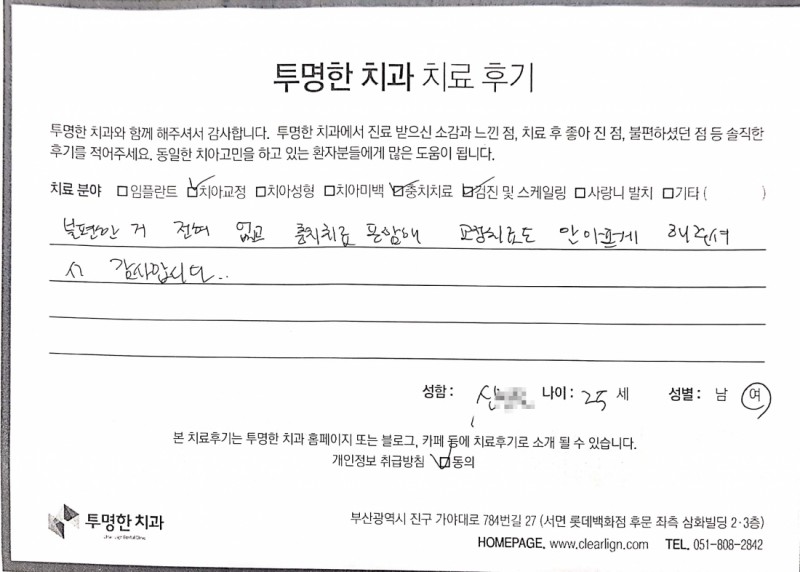 투명한 치과 치료 후기
투명한 치과와 함께 해주셔서 감사합니다. 투명한 치과에서 진료 받으신 소감과 느낀 점, 치료 후 좋아 진 점, 불편하셨던 점 등 솔직한
후기를 적어주세요. 동일한 치아고민을 하고 있는 환자분들에게 많은 도움이 됩니다.
치료 분야 □임플란트 ☑치아교정 □치아성형 □치아미백 ☑충치치료 ☑검진 및 스케일링 □사랑니 발치 □기타 ( )
불편한 거 전혀 없고 충치치료 포함해 교정치료도 안아프게 해주셔
서 감사합니다..
성함 : 신 나이 : 25 세 성별 : 남 여
본 치료후기는 투명한 치과 홈페이지 또는 블로그, 카페 등에 치료후기로 소개 될 수 있습니다.
개인정보 취급방침 ☑동의
투명한 치과
부산광역시 진구 가야대로 784번길 27 (서면 롯데백화점 후문 좌측 삼화빌딩 2·3층)
HOMEPAGE. www.clearlign.com TEL. 051-808-2842